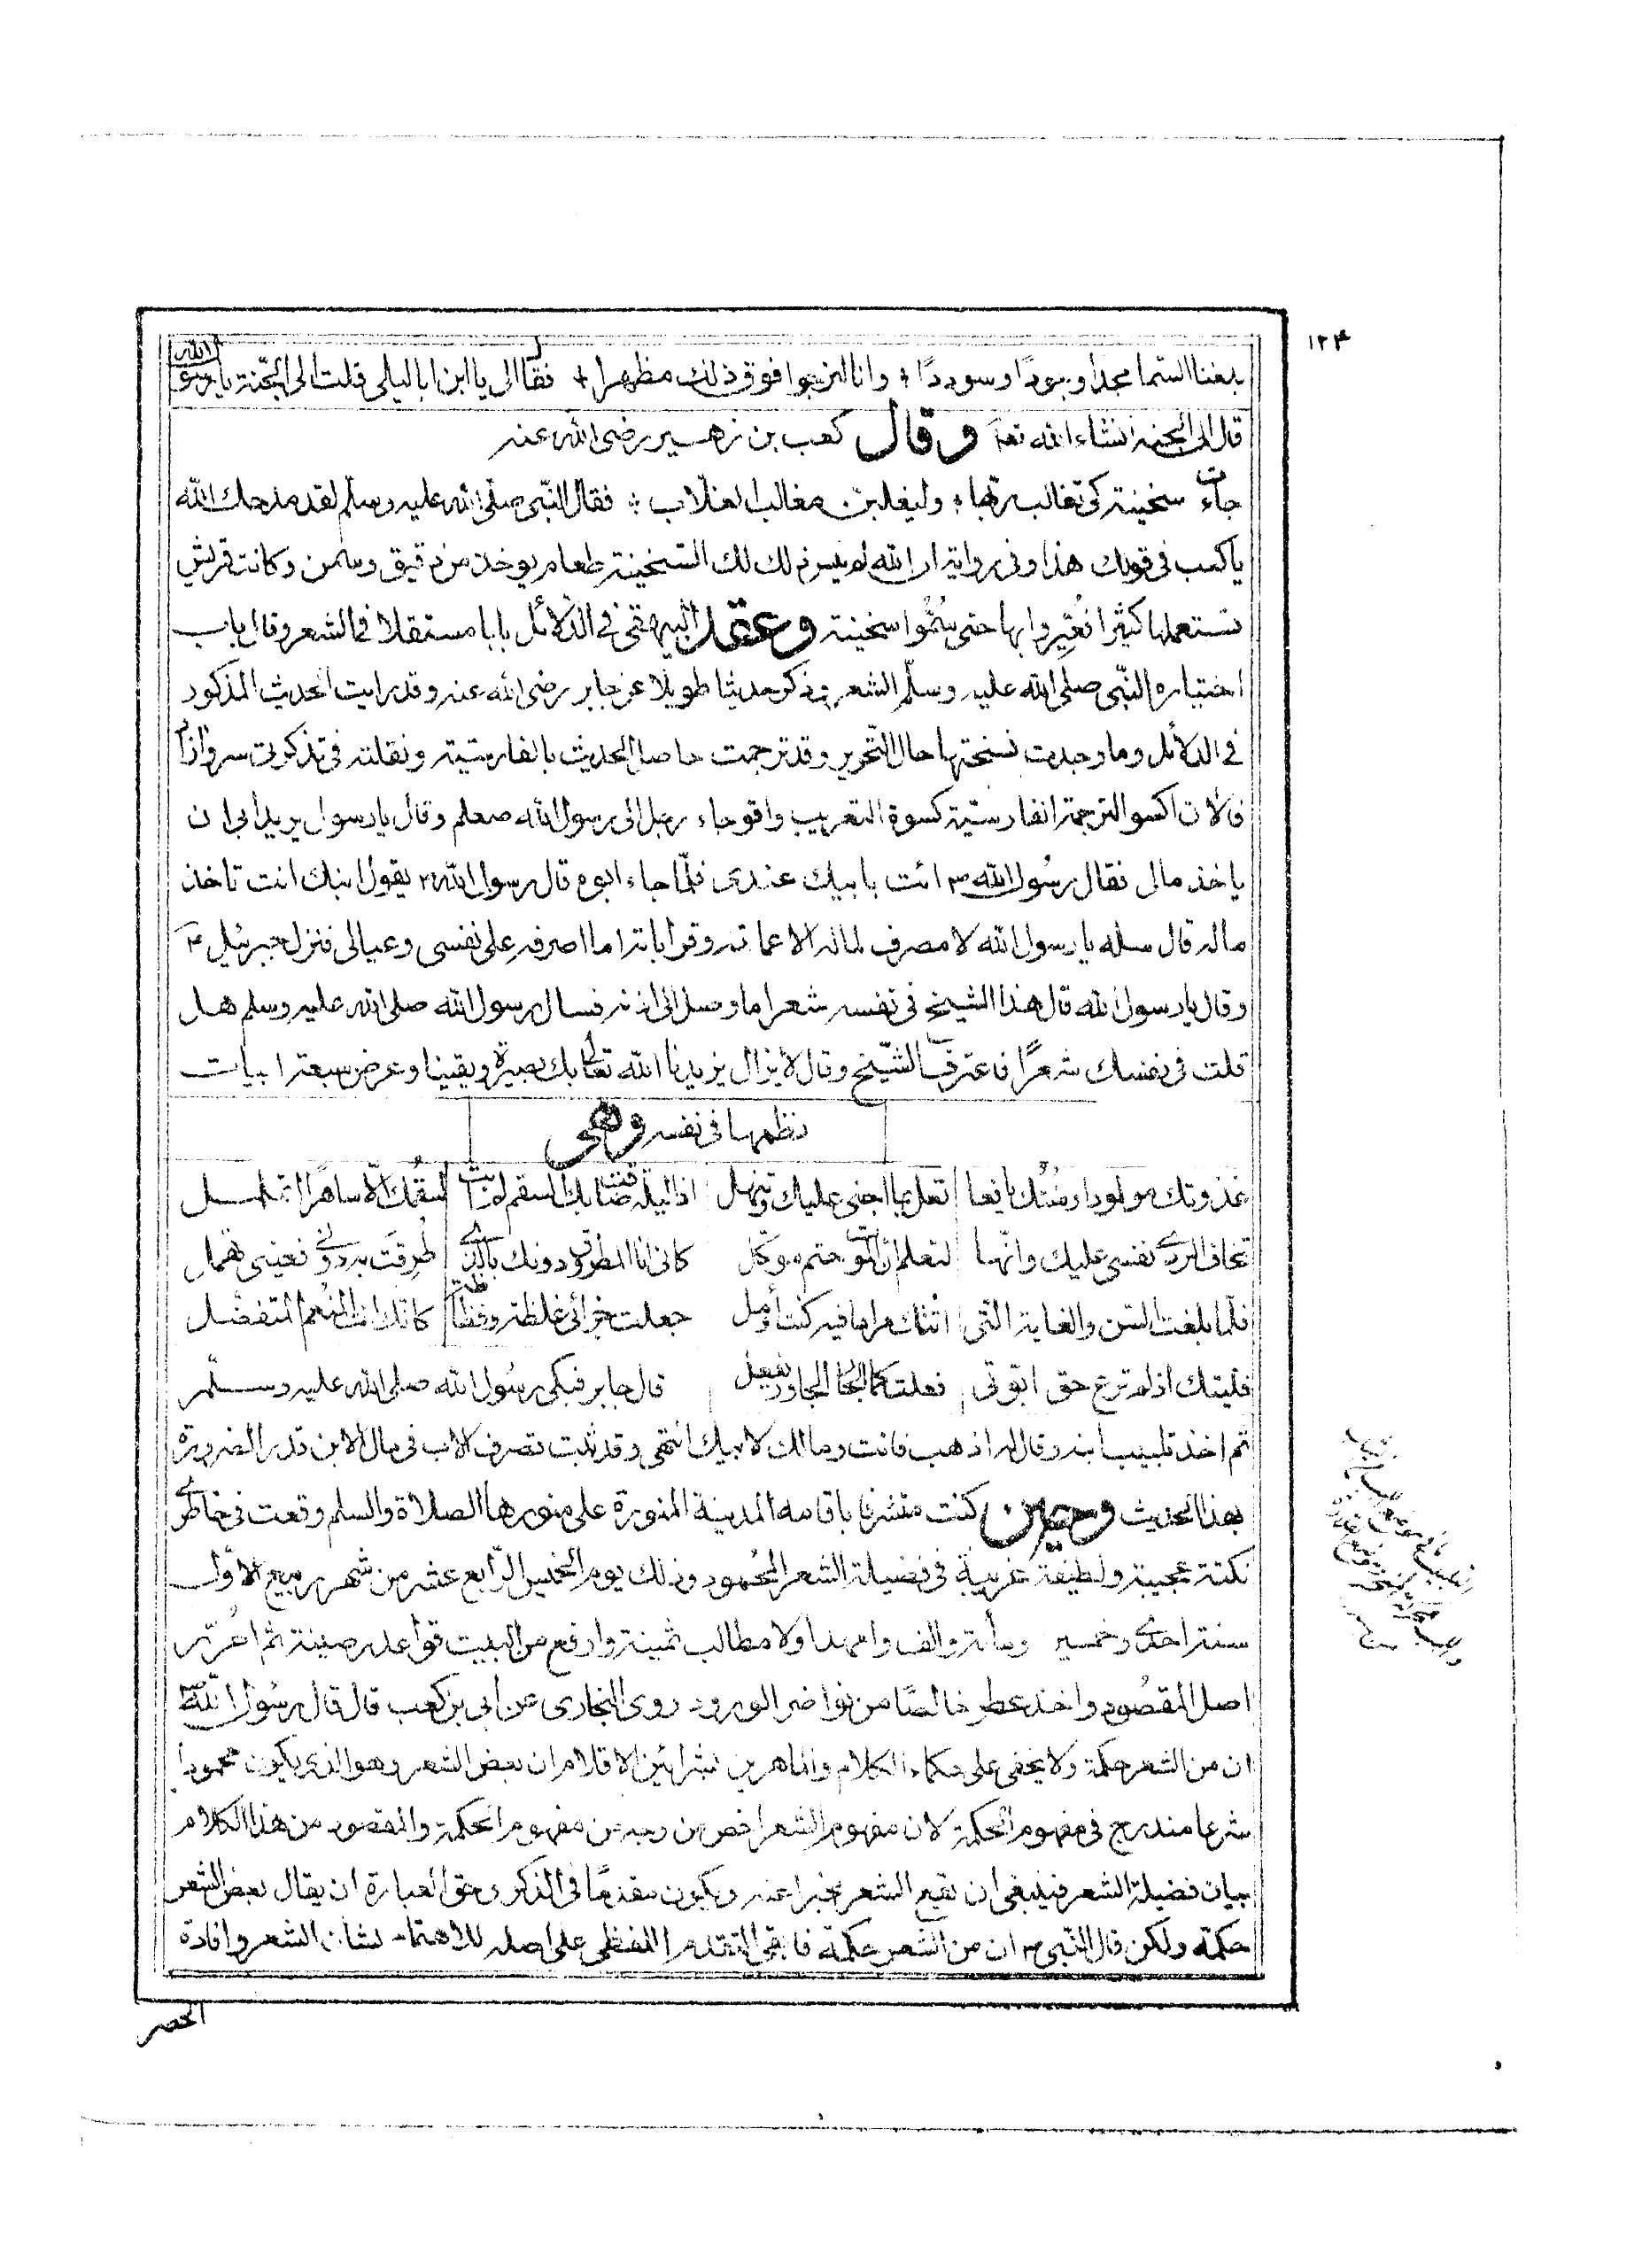 ١٢٤
بلغنا السما مجدا وجودًا وسوددًا ؛ وانا لنرجوا فوق ذلك مظهرا + فقال الى يا ابن ابا ليلى قلت الى الجنّة يا رسول الله
قال الى الجنة انشاء الله تعا وقال كعب بن زهير رضى الله عنه
جاءت سخينة كى تغالب ربّها ؛ وليغلبن مغالب الغلّاب ؛ فقال النّبى صلّى الله عليه وسلّم لقد مدحك الله
يا كعب فى قولك هذا وفى رواية ان الله لم ينس ذلك لك السّخينة طعام يوخذ من دقيق وسمن وكانت قريش
تستعملها كثيرا فعُيِّروا بها حتى سُمُّوا سخينة وعقد البيهقى فى الدّلائل بابا مستقلا فى الشعر وقال باب
اختياره النّبى صلى الله عليه وسلّم الشعر وذكر حديثا طويلا عن جابر رضى الله عنه وقد رايت الحديث المذكور
فى الدلائل وما وجدت نسختها حال التّحرير وقد ترجمت حاصل الحديث بالفارسيّة ونقلته فى تذكرتى سرو ازاد
فالان اكسو الترجمة الفارسيّة كسوة التعريب واقول جاء رجل الى رسول الله صعلم وقال يا رسول يريد ابى ان
ياخذ مالى فقال رسُول الله ائت بابيك عندى فلمّا جاء ابوه قال رسول الله يقول ابنك انت تاخذ
ماله قال سله يا رسول الله لا مصرف لماله الا عماته وقراباته اما اصرفه على نفسى وعيالى فنزل جبرئيل
وقال يا رسول الله قال هذا الشيخ فى نفسه شعرا ما وصل الى اذنه فسال رسول الله صلى الله عليه وسلم هل
قلت فى نفسك شعرًا فاعترف الشّيخ وقال لا يزال يزيدنا الله تعا بك بصيرة ويقينا وعرض سبعة ابيات
نظمها فى نفسه وهى
غذوتك مولودا ومُنْتُك يافعا تعل بما اجنى عليك وتنهل اذا ليلة ضافتك بالسقم لم ابت لسقمك الّا ساهرًا اتململ
تخاف الردى نفسى عليك وانّها لتعلم ان الموت حتم موكّل كانى انا المطروق دونك بالذى طُرِقت به دونى فعينى تهمل
فلمّا بلغت السّن والغاية التى اتتك مراما فيه كنت أومل جعلت جزائى غلظة وفظاظة كانّك انت المنعم المتفضّل
فليتك اذ لم ترع حق ابوّتى فعلت كما الجار المجاور يفعل قال جابر فبكى رسُول الله صلى الله عليه وسلّم
ثم اخذ تلبيب ابنه وقال له اذهب فانت ومالك لابيك انتهى وقد ثبت تصرف الاب فى مال الابن قدر الضرورة
بهذا الحديث وحين كنت متشرفا باقامه المدينة المنورة على منورها الصلاة والسلم وقعت فى خاطرى
نكتة عجيبة ولطيفة غريبة فى فضيلة الشعر المحُمود وذلك يوم الخميس الرّابع عشر من شهر ربيع الاوّل
سنة احدى وخمسين ومأة والف وامهد اولا مطالب ثمينة وارفع من البيت قواعد رصينة ثم اعُزّز
اصل المقصُود واخذ عطر خالصًا من نواضر الورود روى البخارى عن ابى بن كعب قال قال رسُول الله
ان من الشعر حكمة ولا يخفى على حكماء الكلام والماهرين بشرائين الاقلام ان بعض الشعر وهو الذى يكون محمودا
شرعا مندرج فى مفهوم الحكمة لان مفهوم الشعر اخص من وجه من مفهوم الحكمة والمقصود من هذا الكلام
بيان فضيلة الشعر فينبغى ان يقع الشعر مخبرا عنه ويكون مقدمًا فى الذكر وحق العبارة ان يقال بعض الشعر
حكمة ولكن قال النّبى ان من الشعر حكمة فابقى التقدم اللفظى على اصله للاهتمام بشان الشعر وافادة
الحصر